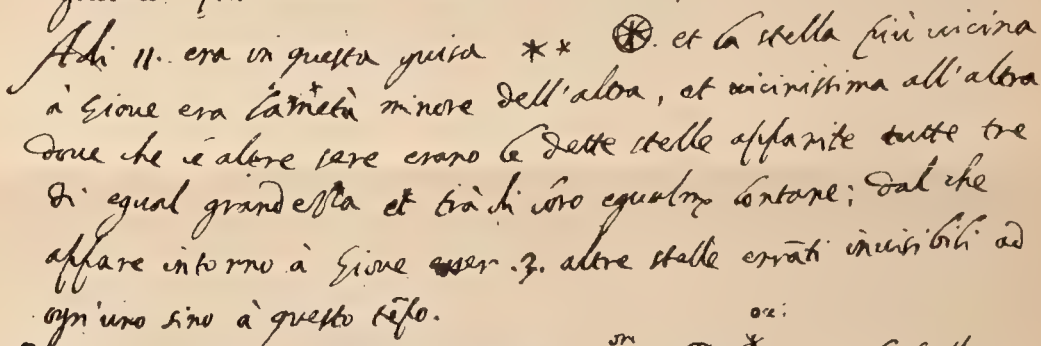 Adi 11. era in questa guisa ** ⊛. et la stella più uicina
à Gioue era la metà minore dell'altra, et uicinissima all'altra
doue che le altre sere erano le dette stelle apparite tutte tre
di egual grandezza et trà di loro egualm. lontane; dal che
appare intorno à Gioue esser .3. altre stelle errāti inuisibili ad
ogn'uno sino à questo tēpo.